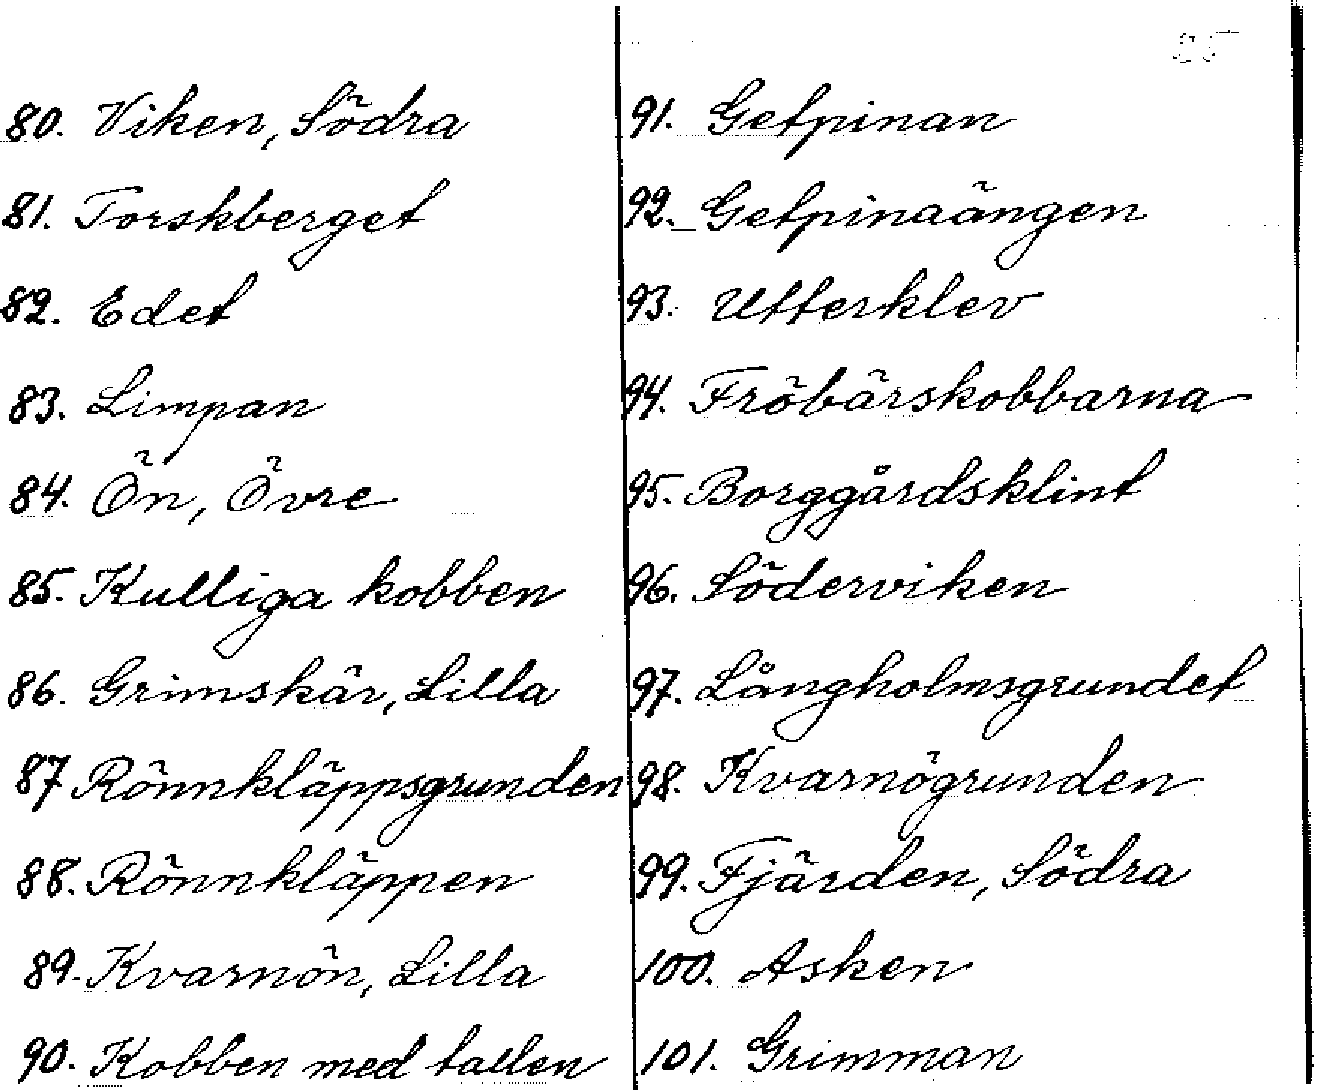 80. Viken, Södra
81. Torskberget
82. Edet
83. Limpan
84. Ön, Övre
85. Kulliga kobben
86. Grimskär, Lilla
87 Rönnkläppsgrunden
88. Rönnkläppen
89. Kvarnön, Lilla
90. Kobben med tallen
91. Getpinan
92. Getpinaängen
93. Utterklev
94. Fröbärskobbarna
95. Borggårdsklint
96. Söderviken
97. Långholmsgrundet
98. Kvarnögrunden
99. Fjärden, Södra
100. Asken
101. Grimman